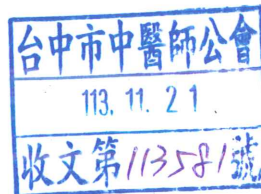 台中市中醫師公會
113. 11. 21.
收文第113581號